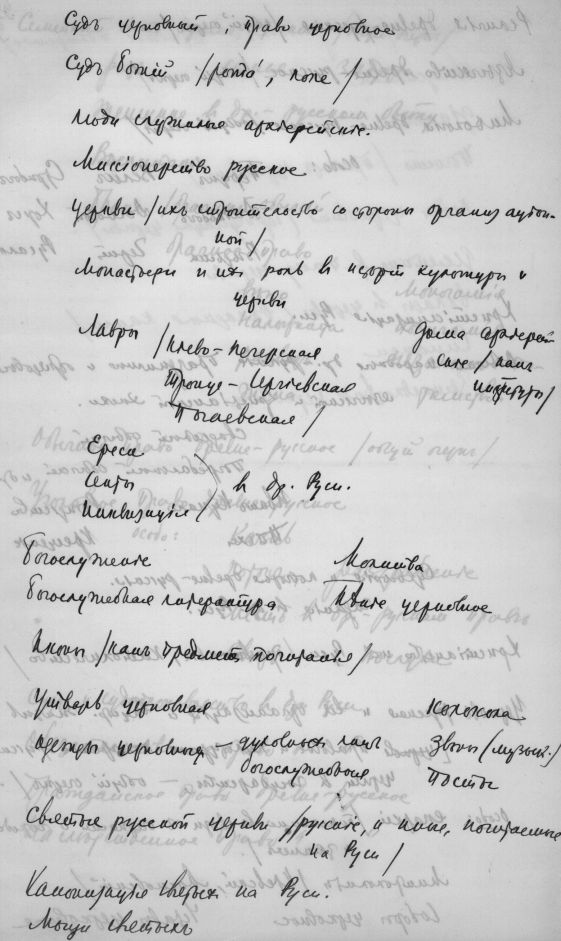 Судъ церковный, право церковное
Судъ Божій /рота, поле/
Люди служилые архіерейскіе.
Миссіонерство русское
Церкви /ихъ строительство со стороны организацiон-
ной/
Монастыри и ихъ роль в исторіи культуры и
церкви
Лавры /Кіево-Печерская
Троице-Сергіевская
Почаевская/
Дома архіерей-
скіе /какъ
институты/
Ереси
Секты
Инквизиція /
в др. Руси.
Богослуженіе
Богослужебная литература
Молитва
Пѣніе церковное
Иконы /какъ предметъ почитанія/
Утварь церковная
Одежды церковныя – духовныхъ лицъ
богослужебныя
Колокола
Звоны (музык.)
Посты
Святые русской церкви /русскіе, и иные, почитаемые
на Руси/
Канонизація святыхъ на Руси.
Мощи святыхъ